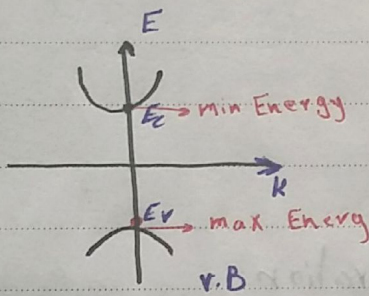 E
Ec min Energy
k
Ev max Energ
v.B